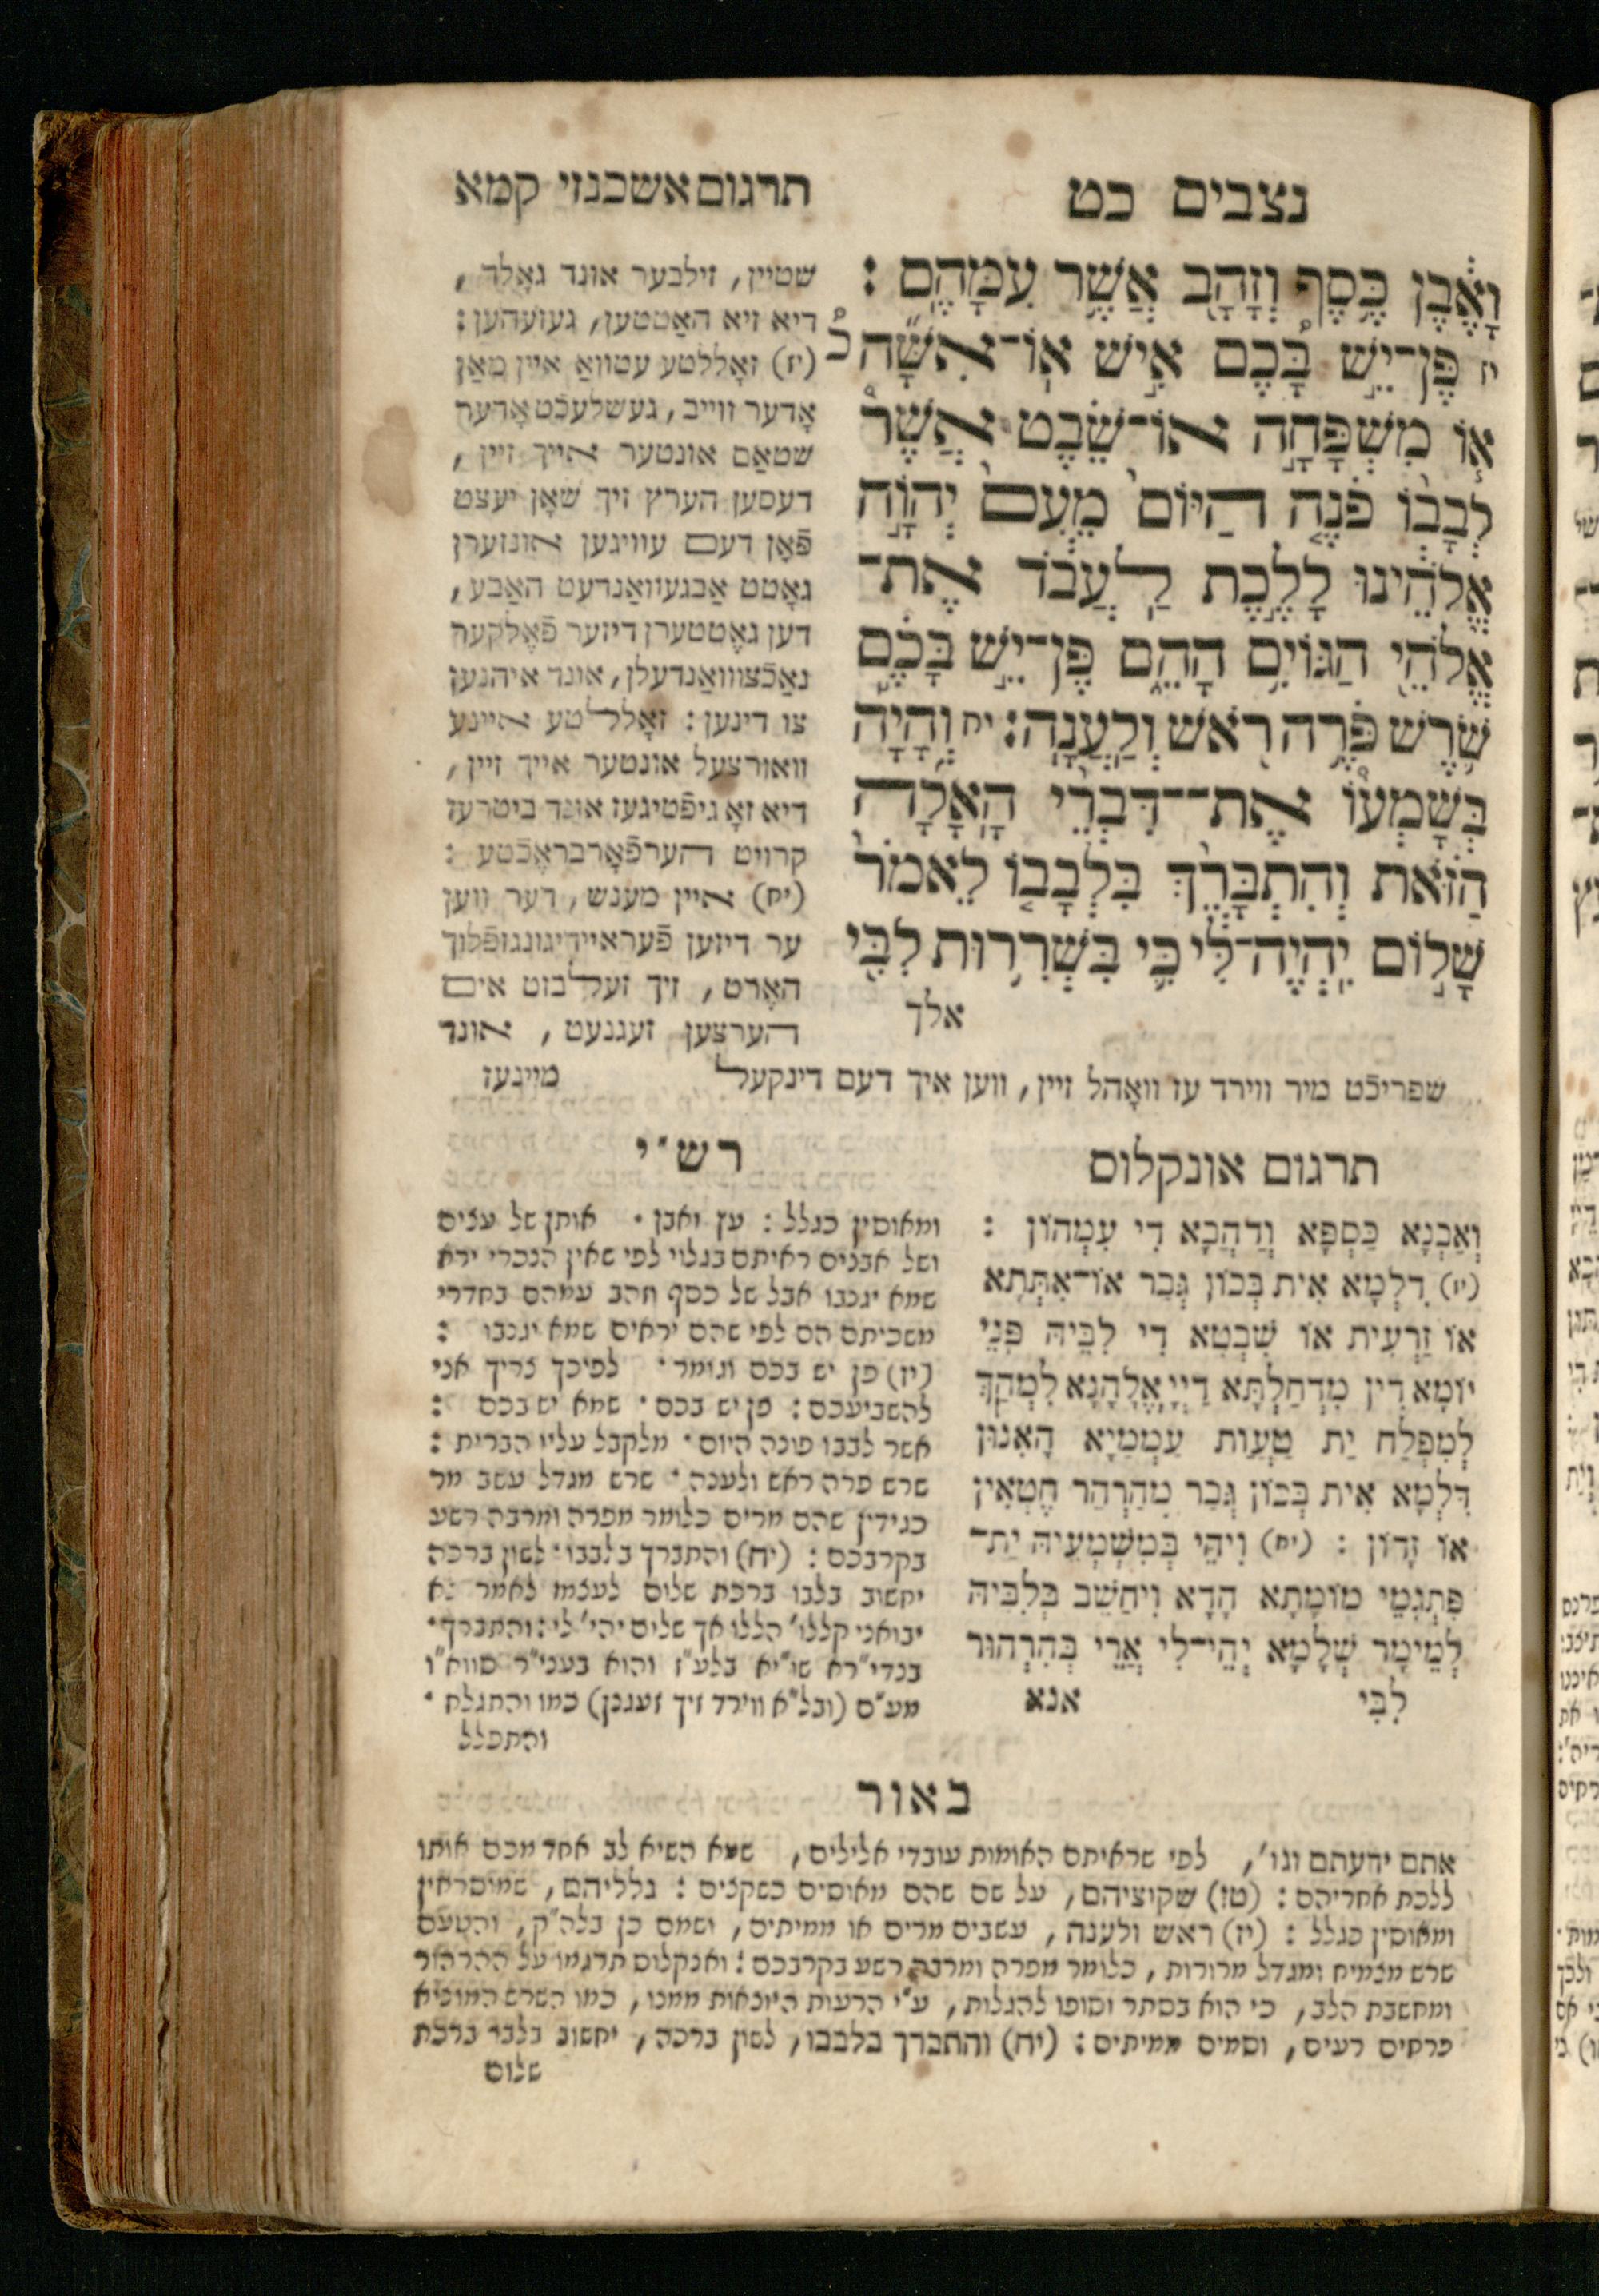 נצבים כט
וָאֶ֔בֶן כֶּ֥סֶף וְזָהָ֖ב אֲשֶׁ֥ר עִמָּהֶֽם׃
יז פֶּן־יֵ֣שׁ בָּ֠כֶם אִ֣ישׁ אֽוֹ־אִשָּׁ֞ה
א֧וֹ מִשְׁפָּחָ֣ה אוֹ־שֵׁ֗בֶט אֲשֶׁר֩
לְבָב֨וֹ פֹנֶ֤ה הַיּוֹם֙ מֵעִם֙ יְהוָ֣ה
אֱלֹהֵ֔ינוּ לָלֶ֣כֶת לַעֲבֹ֔ד אֶת־
אֱלֹהֵ֖י הַגּוֹיִ֣ם הָהֵ֑ם פֶּן־יֵ֣שׁ בָּכֶ֗ם
שֹׁ֛רֶשׁ פֹּרֶ֥ה רֹ֖אשׁ וְלַעֲנָֽה׃ יח וְהָיָ֡ה
בְּשָׁמְעוֹ֩ אֶת־דִּבְרֵ֨י הָֽאָלָ֜ה
הַזֹּ֗את וְהִתְבָּרֵ֨ךְ בִּלְבָב֤וֹ לֵאמֹר֙
שָׁל֣וֹם יִֽהְיֶה־לִּ֔י כִּ֛י בִּשְׁרִר֥וּת לִבִּ֖י
אלך
תרגום אשכנזי קמא
שטיין, זילבער אונד גאָלד,
דיא זיא האַטטען, געזעהען:
(יז) זאָללטע עטוואַ איין מאַן
אָדער ווייב, געשלעכֿט אָדער
שטאַם אונטער אייך זיין,
דעסען הערץ זיך שאָן יעצט
פֿאָן דעם עוויגען אונזערן
גאָטט אַבגעוואַנדעט האַבע,
דען געֶטטערן דיזער פֿאֶלקער
נאַכֿצוואַנדעלן, אונד איהנען
צו דינען: זאָללטע איינע
וואורצעל אונטער אייך זיין,
דיא זאָ גיפֿטיגעז אונד ביטרעז
קרויט הערפֿאָרבראֶכֿטע:
(יח) איין מענש, דער ווען
ער דיזען פֿעראיידיגונגזפֿלוך
האֶרט, זיך זעלבזט אים
הערצען זעגנעט, אונד
שפריכֿט מיר ווירד עז וואָהל זיין, ווען איך דעם דינקעל
מיינעז
תרגום אונקלוס
וְאַבְנָא כַּסְפָּא וְדַהֲבָא דִי עִמְּהוֹן:
(יז) דִלְמָא אִית בְּכוֹן גְּבַר אוֹ־אִתְּתָא
אוֹ זַרְעִית אוֹ שִׁבְטָא דִי לִבֵּיהּ פְּנֵי
יוֹמָא דֵין מִדַּחַלְתָּא דַיְיָ אֱלָהָנָא לִמְהַךְ
לְמִפְלַח יַת טַעֲוַת עַמְמַיָּא הָאִנּוּן
דִּלְמָא אִית בְּכוֹן גְּבַר מְהַרְהֵר חֶטְאִין
אוֹ זָדוֹן: (יח) וִיהֵי בְּמִשְׁמְעֵיהּ יַת־
פִּתְגָּמֵי מוֹמָתָא הָדָא וִיחַשֵּׁב בְּלִבֵּיהּ
לְמֵימָר שְׁלָמָא יְהֵי־לִי אֲרֵי בְּהִרְהוּר
לִבִּי אנא
רש״י
ומאוסין כגלל: עץ ואבן· אותן של עצים
ושל אבנים ראיתם בגלוי לפי שאין הנכרי ירא
שמא יגנבו אבל של כסף וזהב עמהם בחדרי
משכיתם הם לפי שהם יראים שמא יגנבו:
(יז) פן יש בכם וגומר· לפיכך צריך אני
להשביעכם: פן יש בכם· שמא יש בכם:
אשר לבבו פונה היום· מלקבל עליו הברית:
שרש פרה ראש ולענה· שרש מגדל עשב מר
כגידין שהם מרים כלומר מפרה ומרבה רשע
בקרבכם: (יח) והתברך בלבבו· לשון ברכה
יחשוב בלבו ברכת שלום לעצמו לאמר לא
יבואוני קללו׳ הללו אך שלום יהי׳ לי: והתברך·
בנדי״רא שו״יא בלע״ז והוא בעני״ר סווא״ו
מע״ס (ובל״א ווירד זיך זעגנן) כמו והתגלח·
והתפלל
באור
אתם ידעתם וגו׳, לפי שראיתם האומות עובדי אלילים, שמא השיא לב אחד מכם אותו
ללכת אחריהם: (טז) שקוציהם, על שם שהם מאוסים כשקצים: גלליהם, שמוסראין
ומאוסין כגלל: (יז) ראש ולענה, עשבים מרים או ממיתים, ושמם כן בלה״ק, והטעם
שרש מצמיח ומגדל מרורות, כלומר מפרה ומרבה רשע בקרבכם: ואנקלום תרגמו על ההרהור
ומחשבת הלב, כי הוא בסתר וסופו להגלות, ע״י הרעות היוצאות ממנו, כמו השרש המוציא
פרחים רעים, וסמים ממיתים: (יח) והתברך בלבבו, לשון ברכה, יחשוב בלבו ברכת
שלום